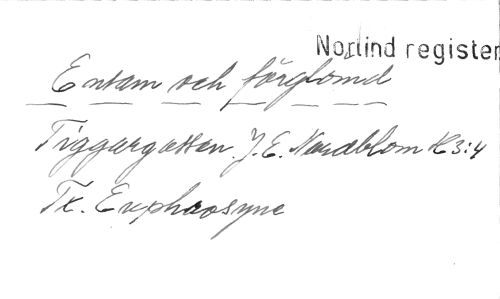 Norlind register
Ensam och förglömd
Tiggargossen. J. E. Nordblom H3:4
Tx. Euphrosyne